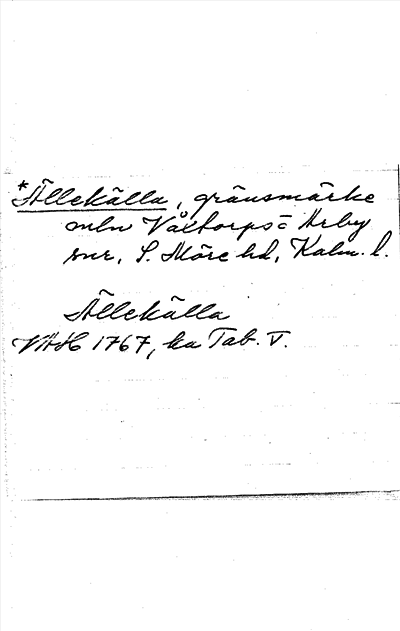 *Ällekälla, gränsmärke
mln Växtorps = Arby
snr, S. Möre hd, Kalm. l.
Ällekälla
VAH 1767, ka Tab. V.